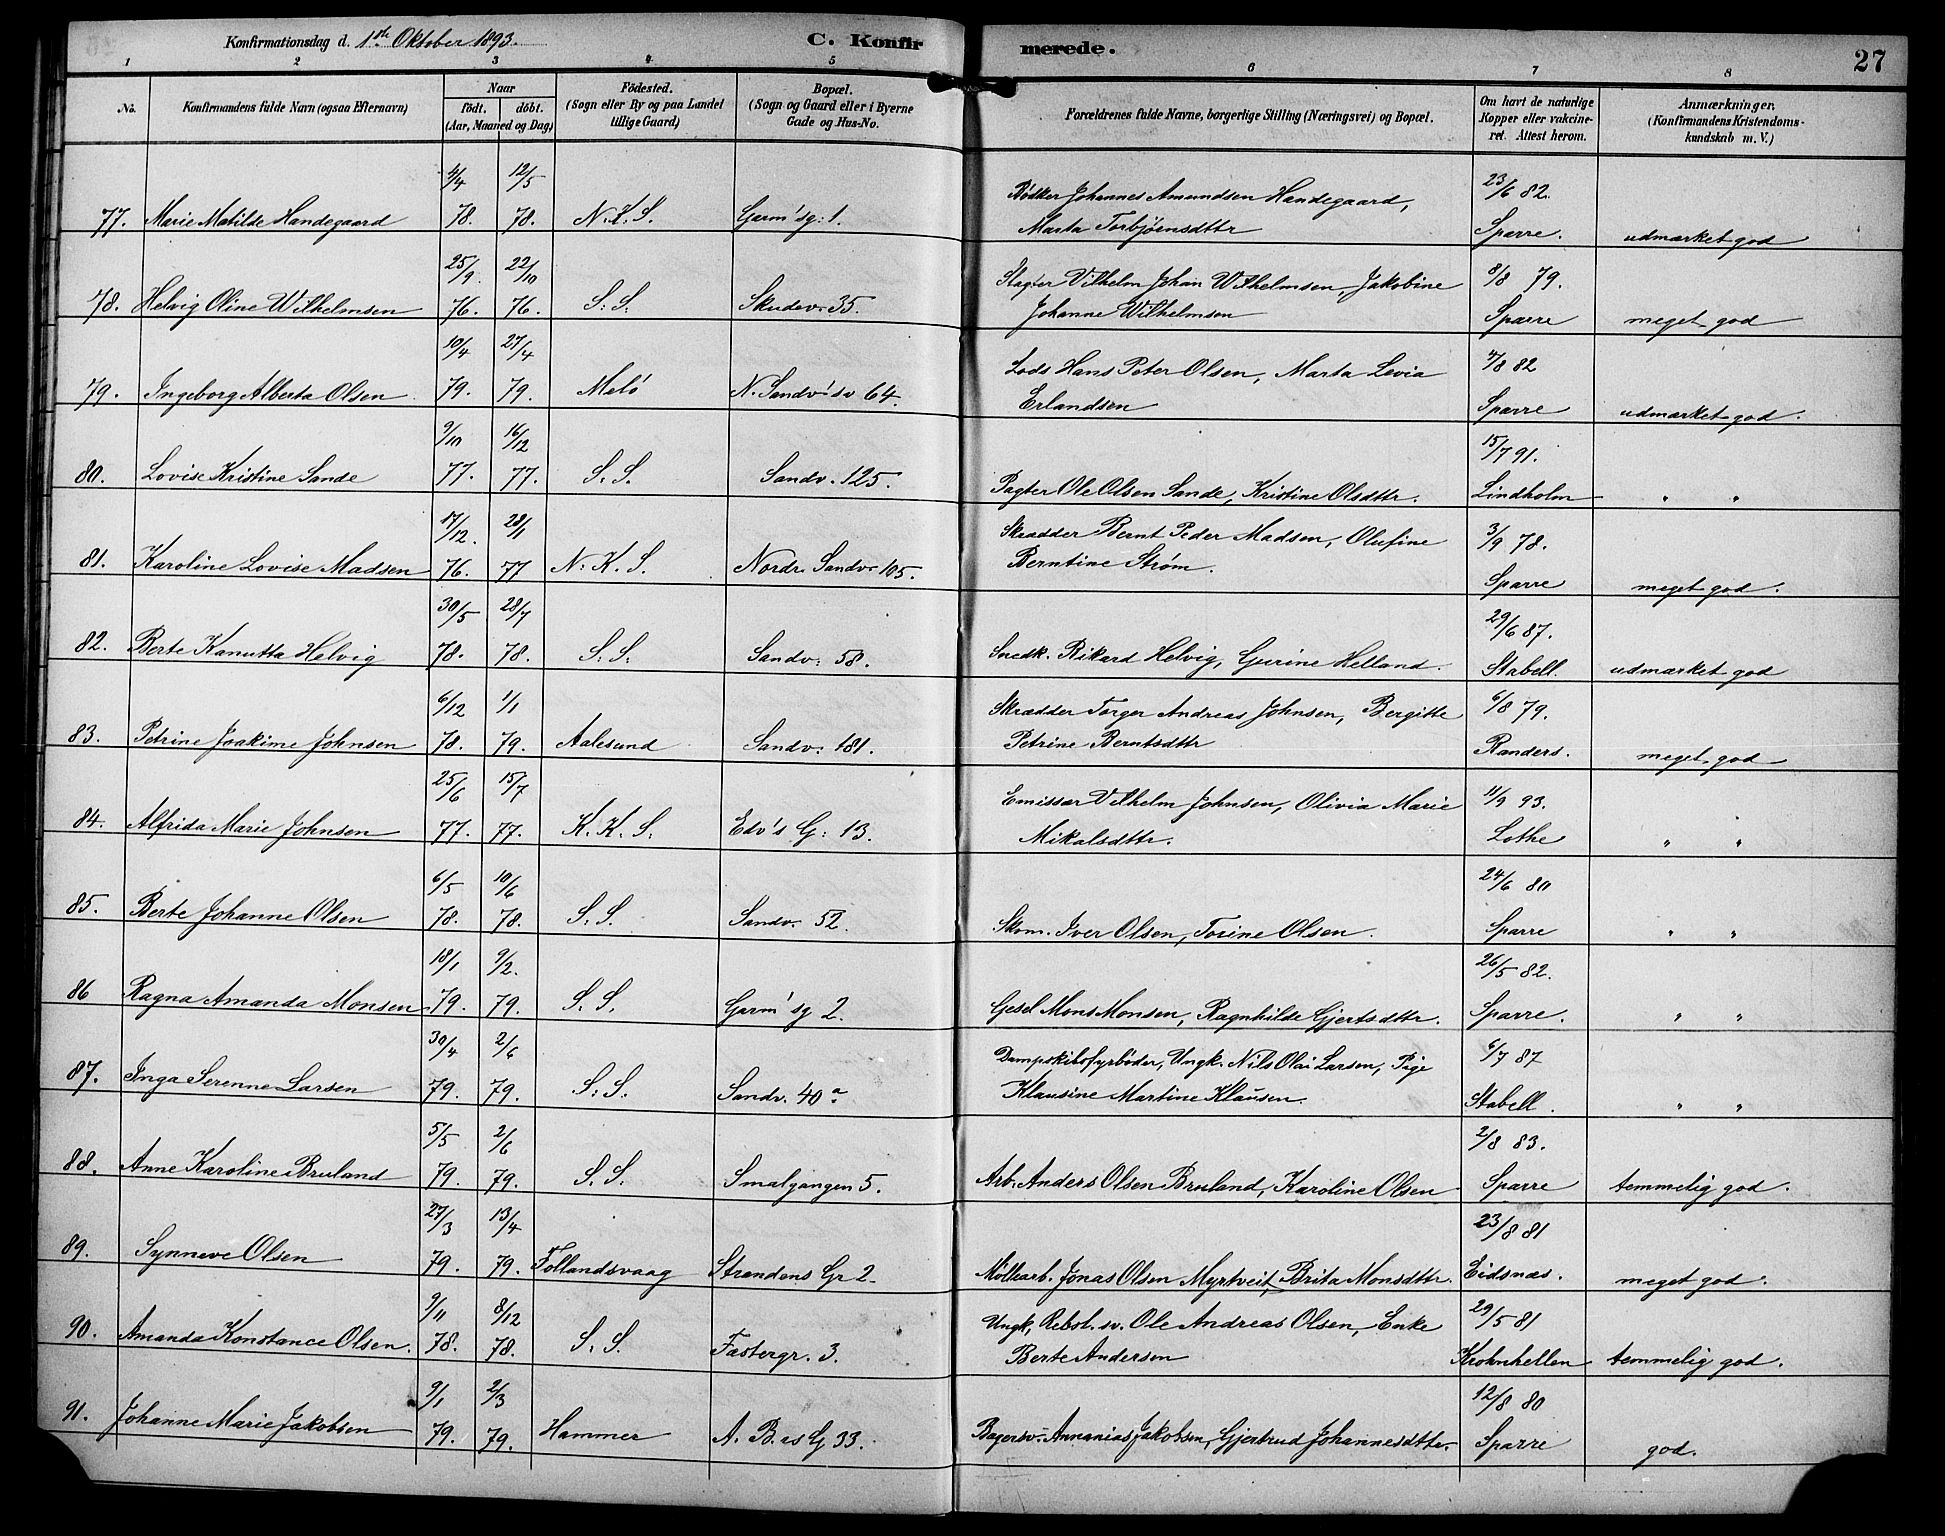 Konfirmationsdag d. 1ste Oktober 1893. C. Konfirmerede. 27
1 2 3 4 5 6 7 8
No. Konfirmandens fulde Navn (ogsaa Efternavn) Naar födt. döbt. (Aar, Maaned og Dag) Födested. (Sogn eller By og paa Landet tillige Gaard) Bopæl. (Sogn og Gaard eller i Byerne Gade og Hus-No. Forældrenes fulde Navne, borgerlige Stilling (Næringsvei) og Bopæl. Om havt de naturlige Kopper eller vakcineret. Attest herom. Anmærkninger. (Konfirmandens Kristendomskundskab m. V.)
4/4 12/5 Bödker Johannes Amundsen Handegaard, 23/6 82.
77. Marie Matilde Handegaard 78. 78. N. K. S. Garm'sg: 1. Marta Torbjöensdttr Sparre. udmærket god
25/9 22/10 Slagter Vilhelm Johan Wilhelmsen, Jakobine 8/8 79.
78. Helvig Oline Wilhelmsen 76. 76. S. S. Skudev. 35. Johanne Wilhelmsen Sparre meget god
10/4 27/4 Lods Hans Peter Olsen, Marta Levia 4/8 82
79. Ingeborg Alberta Olsen 79. 79. Melö N. Sandv'sv 64. Erlandsen Sparre udmærket god.
9/10 16/12 15/7 91.
80. Lovise Kristine Sande 77. 77. S. S. Sandv. 125. Pagter Ole Olsen Sande, Kristine Olsdttr. Lindholm " "
17/12 28/1 Skrædder Bernt Peder Madsen, Olufine 3/9 78.
81. Karoline Lovise Madsen 76. 77 N. K. S. Nordr. Sandv. 105. Berntine Strøm. Sparre meget god.
30/5 28/7 29/6 87.
82. Berte Kanutta Helvig 78. 78. S. S. Sandv. 58. Snedk. Rikard Helvig, Gurine Helland. Stabell. udmærket god
6/12 1/1 Skrædder Torger Andreas Johnsen, Bergitte 6/8 79.
83. Petrine Joakime Johnsen 78. 79. Aalesund Sandv. 181. Petrine Berntsdttr Randers. meget god
25/6 15/7 Emissær Vilhelm Johnsen, Olivia Marie 11/9 93.
84. Alfrida Marie Johnsen 77. 77. K. K. S. Edv's G: 13. Mikalsdttr. Lothe " "
6/5 10/6 24/6 80
85. Berte Johanne Olsen 78. 78. S. S. Sandv. 52. Skom. Iver Olsen, Tosine Olsen. Sparre " "
18/1 9/2. 26/5 82.
86 Ragna Amanda Monsen 79. 79. S. S. Garm'sg 2. Gesel Mons Monsen, Ragnhilde Gjertsdttr. Sparre. " "
30/4 2/6 Dampskibsfyrböder, Ungk. Nils Olai Larsen, Pige 6/7 87
87. Inga Serenne Larsen 79. 79. S. S. Sandv. 40 a Klausine Martine Klausen. Stabell. " "
5/5 2/6 2/8 83.
88. Anne Karoline Bruland 79. 79. S. S. Smalgangen 5. Arb. Anders Olsen Bruland, Karoline Olsen Sparre temmelig god.
27/3 13/4 23/8 81
89. Synneve Olsen 79. 79. Tollandsvaag Strandens Gr 2. Möllearb. Jonas Olsen Myrtveit, Brita Monsdttr. Eidsnæs. meget god.
9/11 8/12 Ungk, Rebsl. sv. Ole Andreas Olsen, Enke 29/5 81
90. Amanda Konstance Olsen. 78. 78. S. S. Fastergr. 3. Berte Andersen Krohnhellen temmelig god.
9/1 2/3 12/8 80
91. Johanne Marie Jakobsen 79. 79. Hammer A. B.'s G 33. Bagersv. Annanias Jakobsen, Gjertrud Johannesdttr. Sparre god.